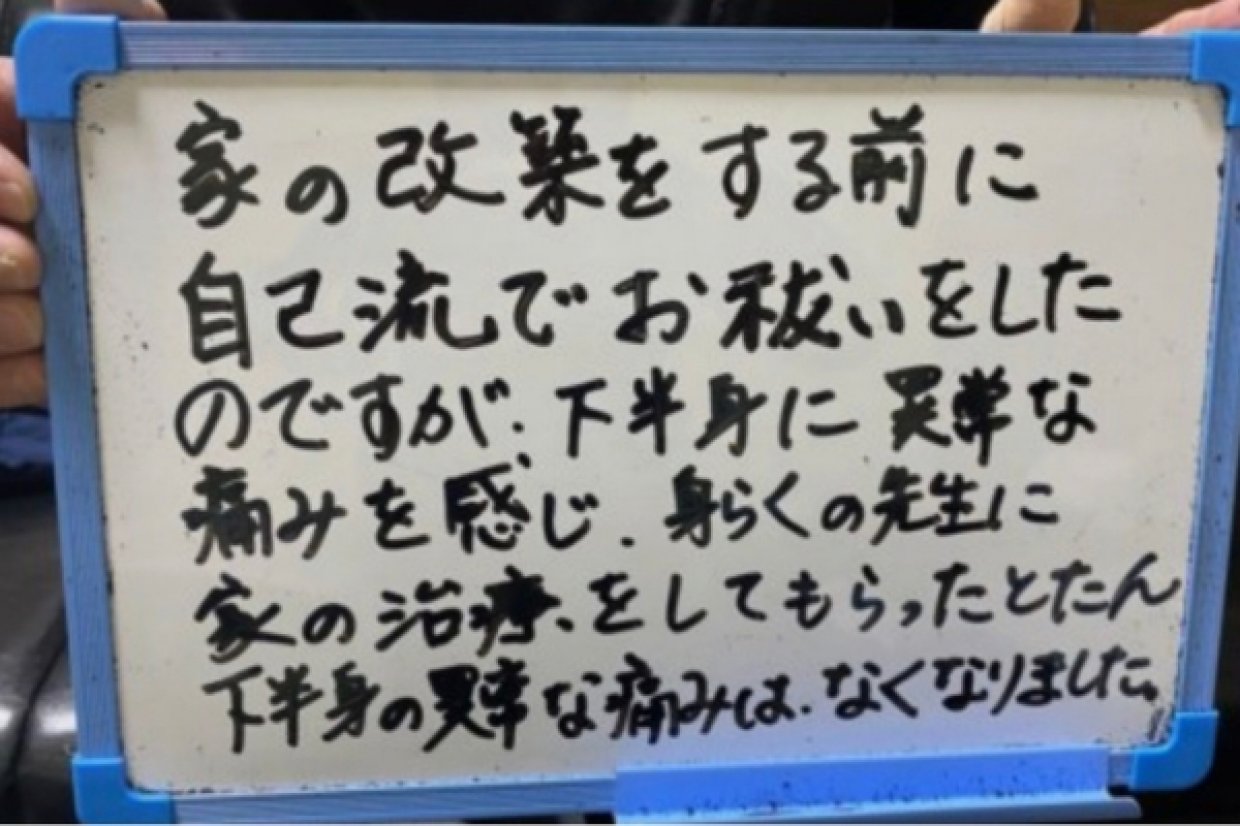 家の改築をする前に
自己流でお祓いをした
のですが、下半身に異常な
痛みを感じ、身らくの先生に
家の治療、をしてもらったとたん
下半身の異常な痛みは、なくなりました。